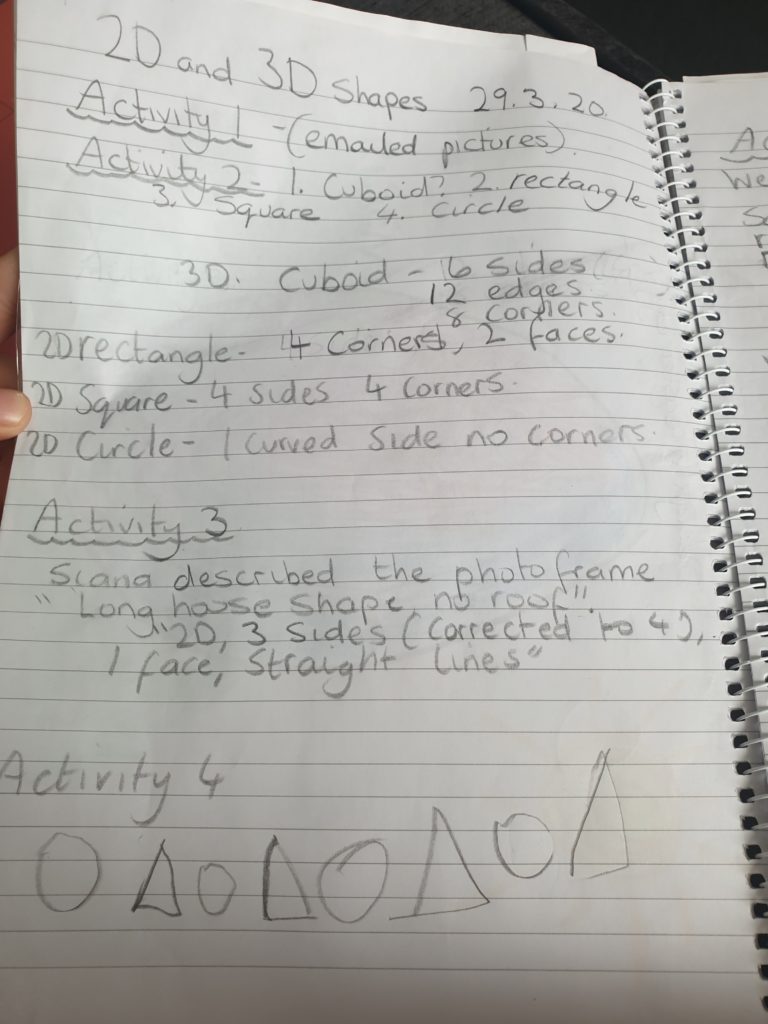 2D and 3D Shapes 29.3.20.
Activity 1 - (emailed pictures).
Activity 2 - 1. Cuboid? 2. rectangle
3. Square 4. Circle
3D. Cuboid - 6 sides
12 edges
8 corners.
2D rectangle - 4 Corners, 2 faces.
2D Square - 4 sides 4 corners.
2D Circle - 1 curved side no corners.
Activity 3
described the photo frame
"Long house shape, no roof".
"2D, 3 sides (corrected to 4),
1 face, straight lines"
Activity 4
Ac
We